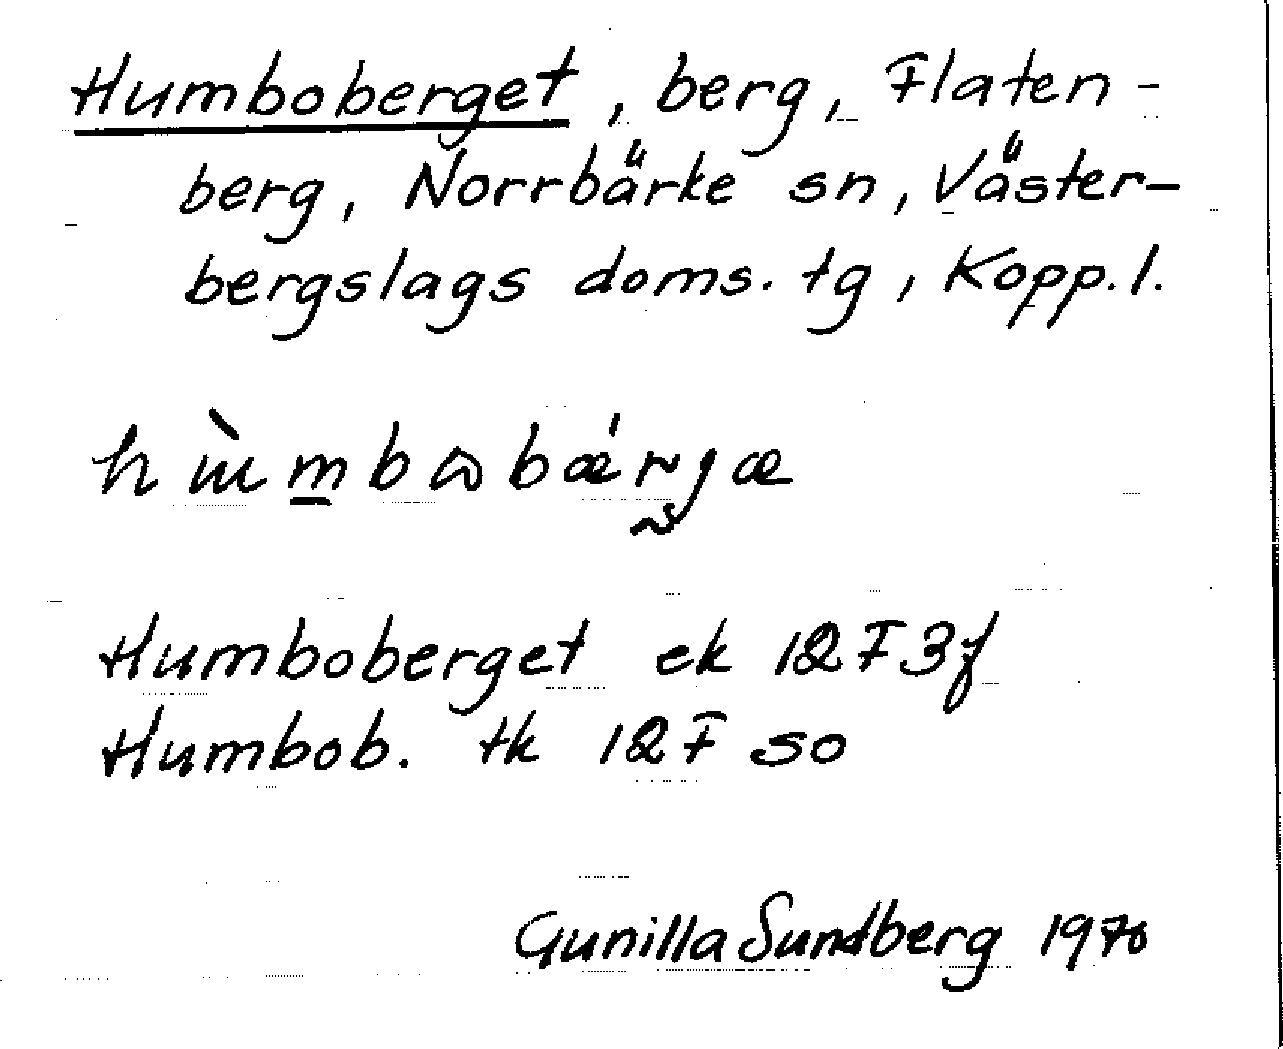 Humboberget, berg, Flaten-
berg, Norrbärke sn, Väster-
bergslags doms. tg, Kopp. l.
Humboberget ek 12F3f
Humbob. tk 12F so
Gunilla Sundberg 1970